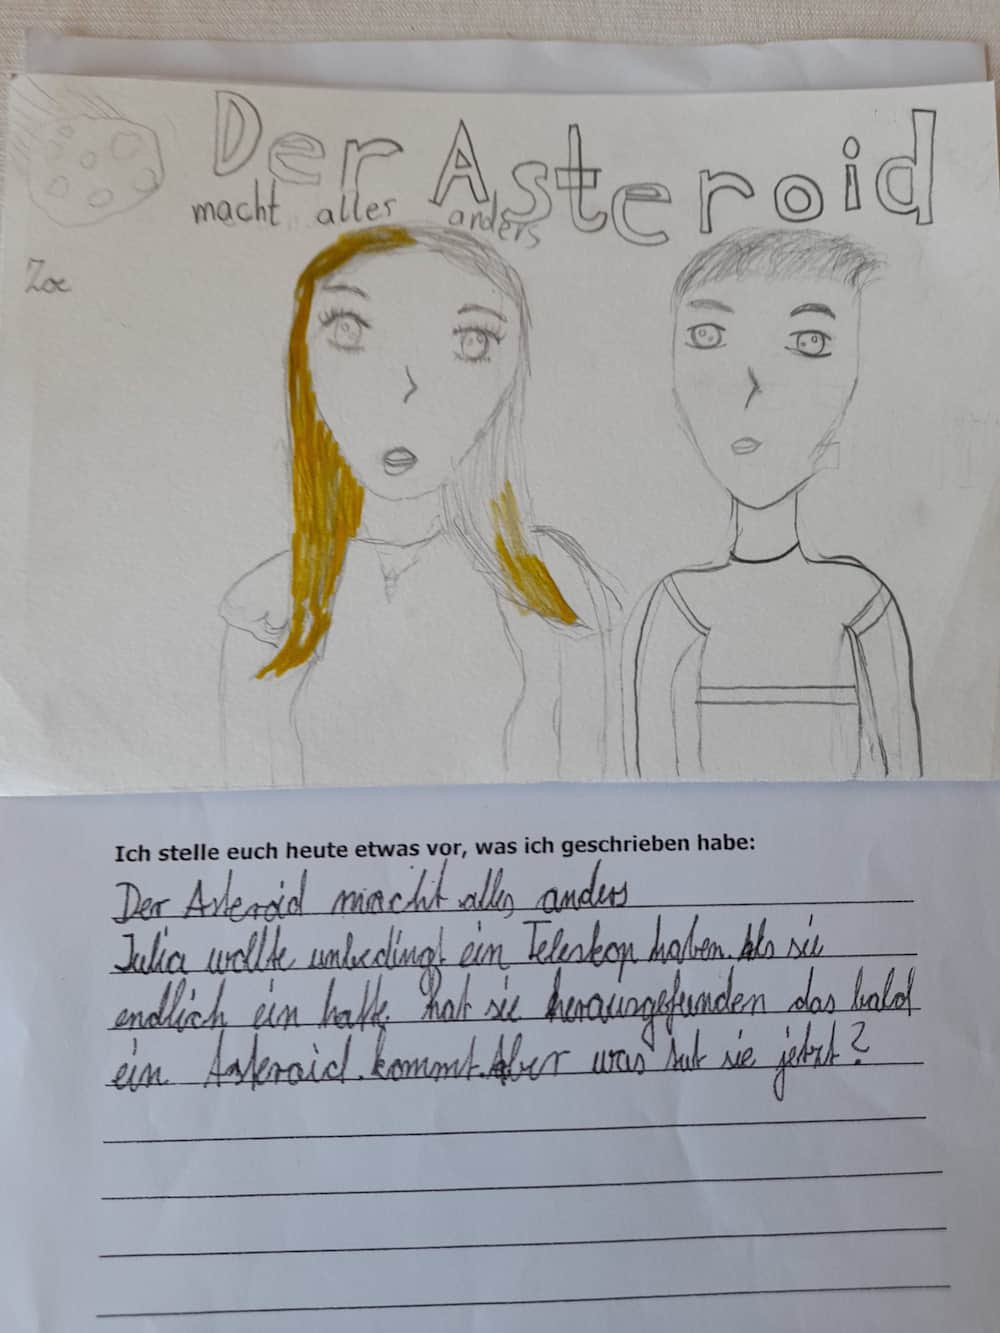 Der Asteroid
macht alles anders
Zoe
Ich stelle euch heute etwas vor, was ich geschrieben habe:
Der Asteroid macht alles anders
Julia wollte unbedingt ein Teleskop haben. Als sie
endlich ein hatte hat sie herausgefunden das bald
ein Asteroid kommt. Aber was tut sie jetzt?